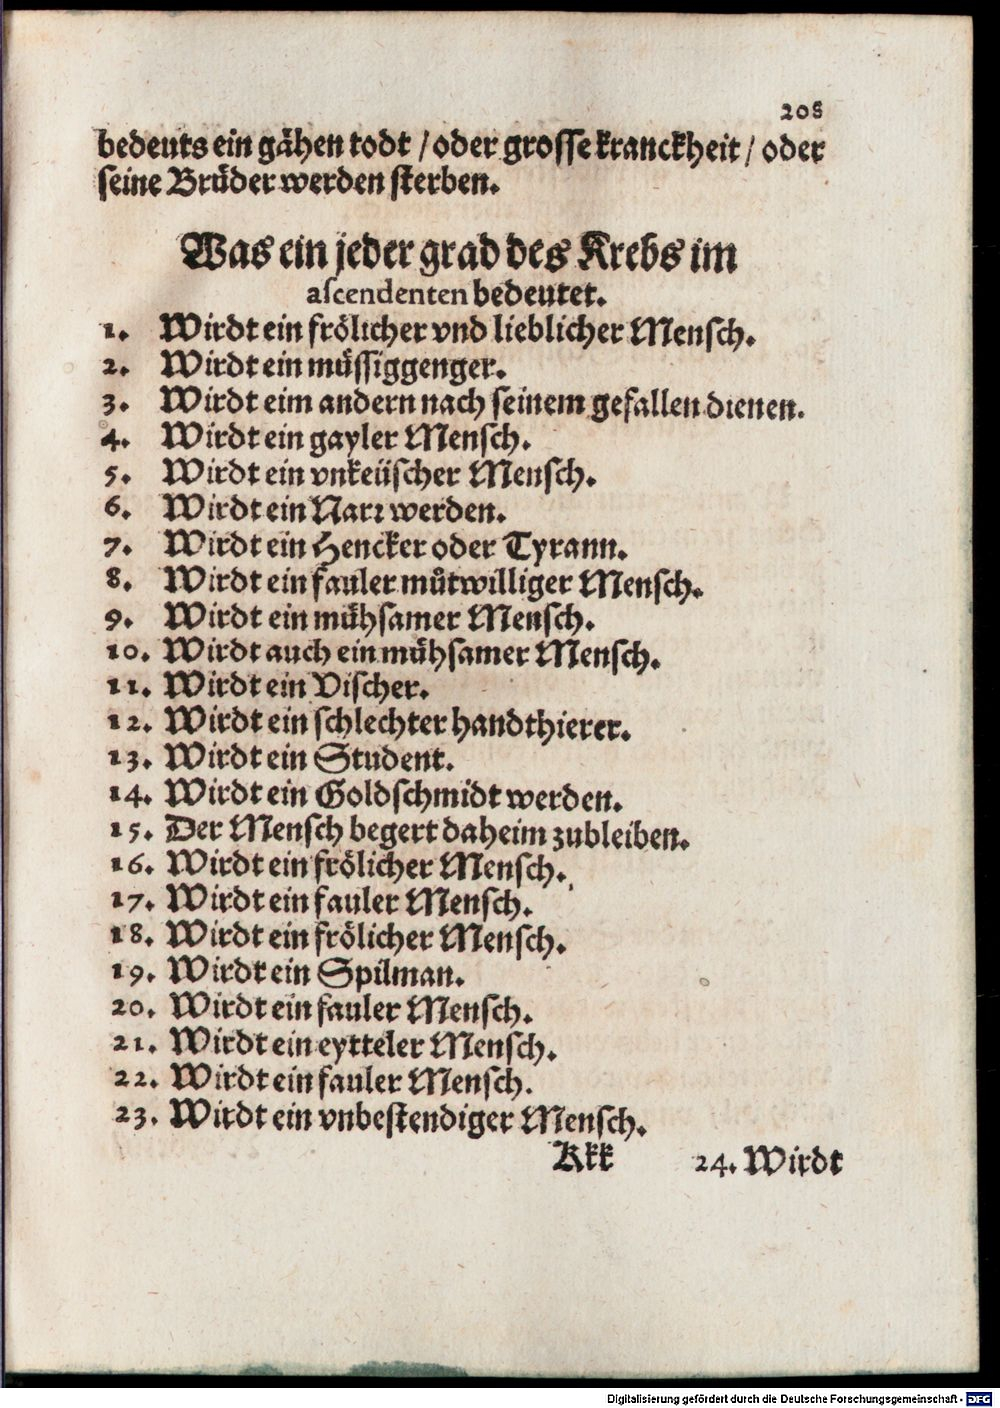 208
bedeuts ein gähen todt / oder grosse kranckheit / oder
seine Brüder werden sterben.
Was ein jeder grad des Krebs im
ascendenten bedeutet.
1. Wirdt ein frölicher vnd lieblicher Mensch.
2. Wirdt ein müssiggenger.
3. Wirdt eim andern nach seinem gefallen dienen.
4. Wirdt ein gayler Mensch.
5. Wirdt ein vnkeüscher Mensch.
6. Wirdt ein Narr werden.
7. Wirdt ein Hencker oder Tyrann.
8. Wirdt ein fauler můtwilliger Mensch.
9. Wirdt ein mühsamer Mensch.
10. Wirdt auch ein mühsamer Mensch.
11. Wirdt ein Vischer.
12. Wirdt ein schlechter handthierer.
13. Wirdt ein Student.
14. Wirdt ein Goldschmidt werden.
15. Der Mensch begert daheim zubleiben.
16. Wirdt ein frölicher Mensch.
17. Wirdt ein fauler Mensch.
18. Wirdt ein frölicher Mensch.
19. Wirdt ein Spilman.
20. Wirdt ein fauler Mensch.
21. Wirdt ein eytteler Mensch.
22. Wirdt ein fauler Mensch.
23. Wirdt ein vnbestendiger Mensch.
Kkk 24. Wirdt
Digitalisierung gefördert durch die Deutsche Forschungsgemeinschaft - DFG